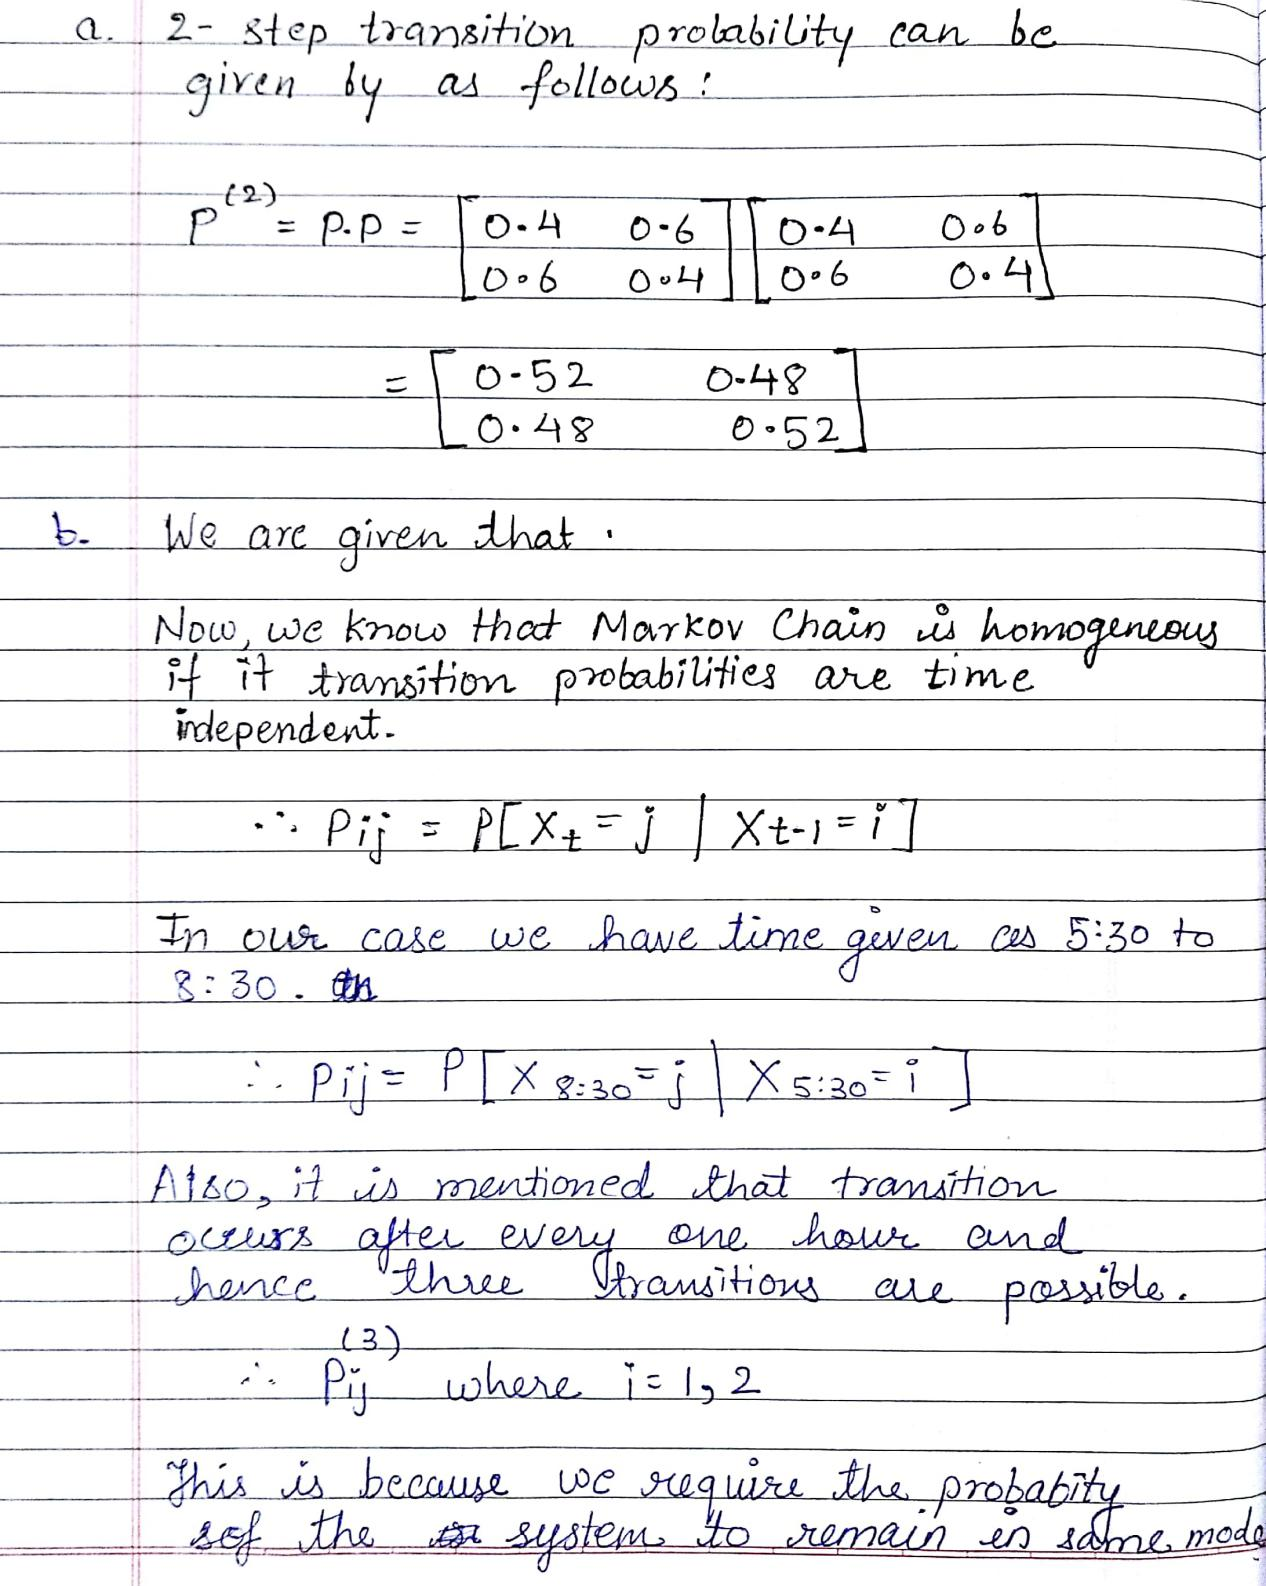 a. 2- step transition probability can be
given by as follows:
P(2) = P.P = [0.4 0.6] [0.4 0.6]
[0.6 0.4] [0.6 0.4]
= [0.52 0.48]
[0.48 0.52]
b. We are given that.
Now, we know that Markov Chain is homogeneous
if it transition probabilities are time
independent.
∴ Pij = P[Xt = j | Xt-1 = i]
In our case we have time given as 5:30 to
8:30.
∴ Pij = P[X 8:30 = j | X 5:30 = i]
Also, it is mentioned that transition
occurs after every one hour and
hence three transitions are possible.
∴ Pij(3) where i = 1, 2
This is because we require the probabity
the system to remain in same mode